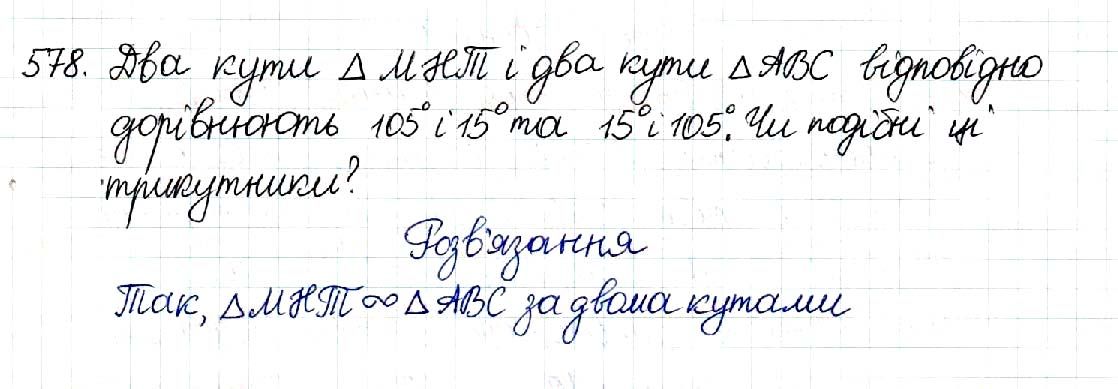 578. Два кути △ МНТ і два кути △ АВС відповідно
дорівнюють 105° і 15° та 15° і 105°. Чи подібні ці
трикутники?
Розв'язання
Так, △МНТ ∞ △АВС за двома кутами